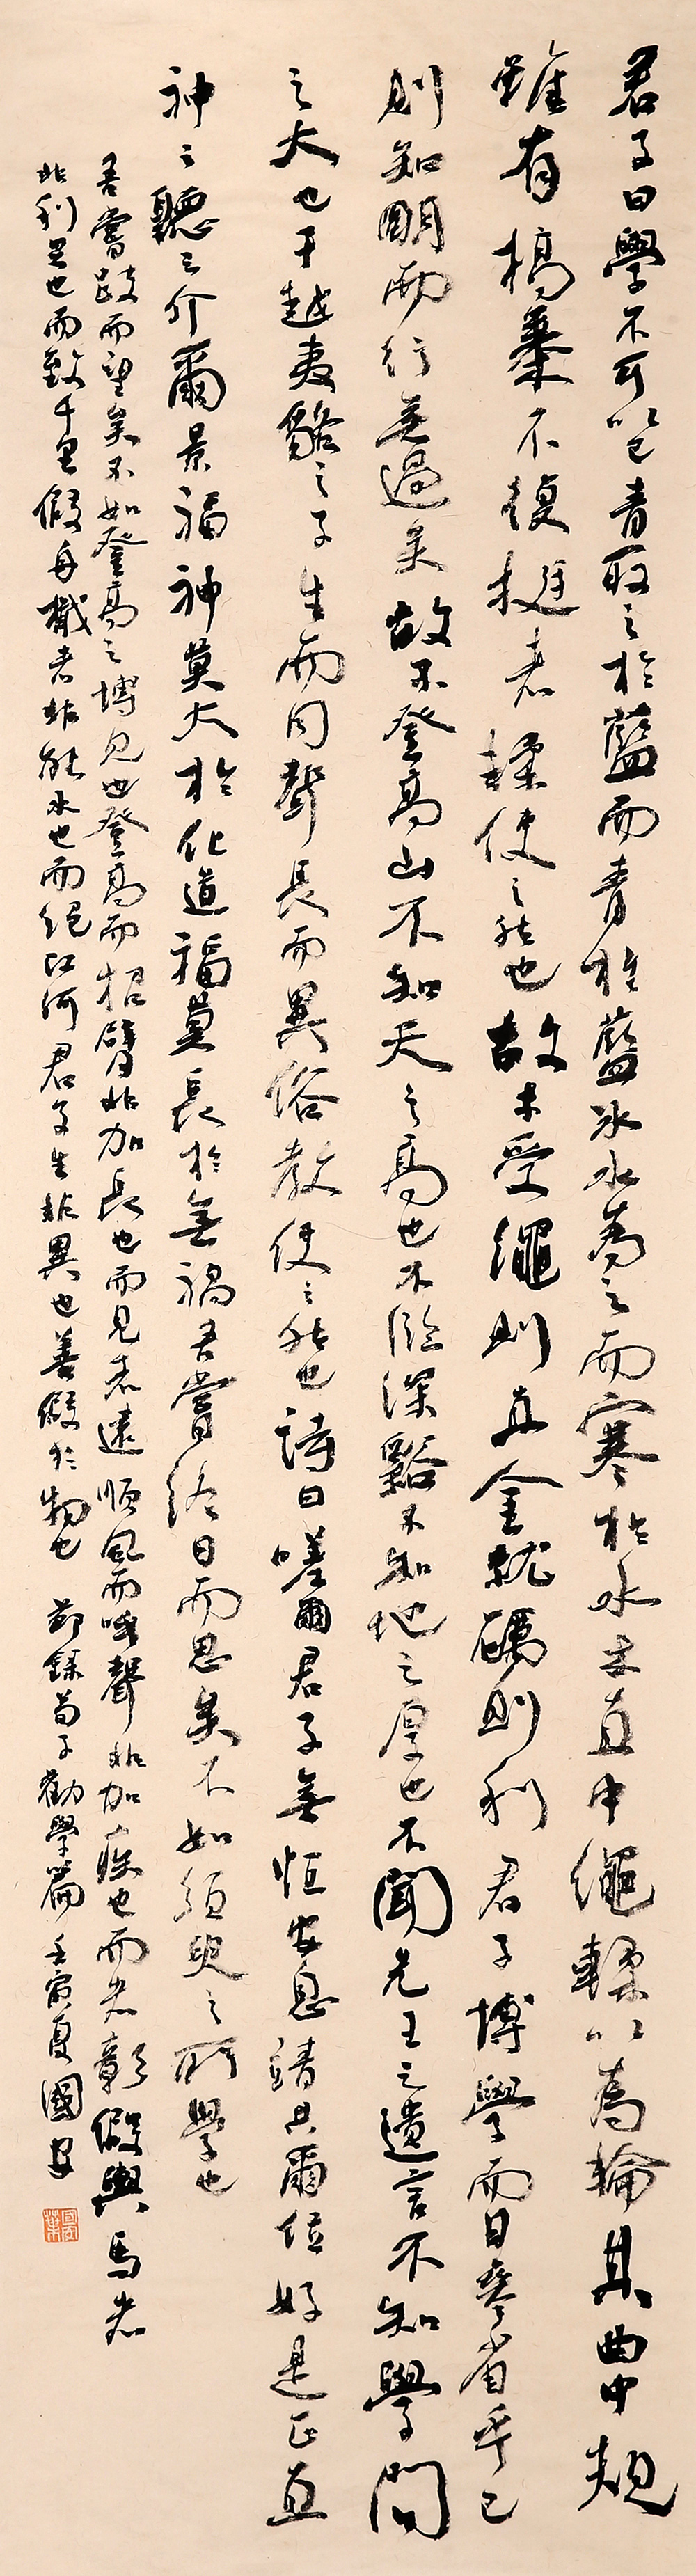 君子曰學不可以已青取之於藍而青於藍冰水為之而寒於水木直中繩輮以為輪其曲中規
雖有槁暴不復挺者輮使之然也故木受繩則直金就礪則利君子博學而日參省乎己
則知明而行無過矣故不登高山不知天之高也不臨深谿不知地之厚也不聞先王之遺言不知學問
之大也干越夷貉之子生而同聲長而異俗教使之然也詩曰嗟爾君子無恒安息靖共爾位好是正直
神之聽之介爾景福神莫大於化道福莫長於無禍吾嘗終日而思矣不如須臾之所學也
吾嘗跂而望矣不如登高之博見也登高而招臂非加長也而見者遠順風而呼聲非加疾也而者彰假輿馬者
非利足也而致千里假舟檝者非能水也而絕江河君子生非異也善假於物也 節錄荀子勸學篇 壬寅夏國安